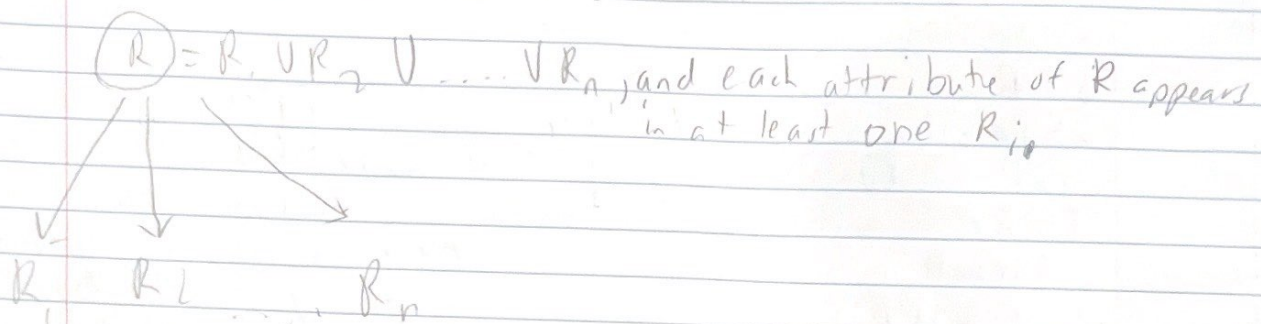 R = R₁ ∪ R₂ ∪ .... ∪ Rₙ, and each attribute of R appears
in at least one Rᵢ.
R₁ R₂ ..... Rₙ